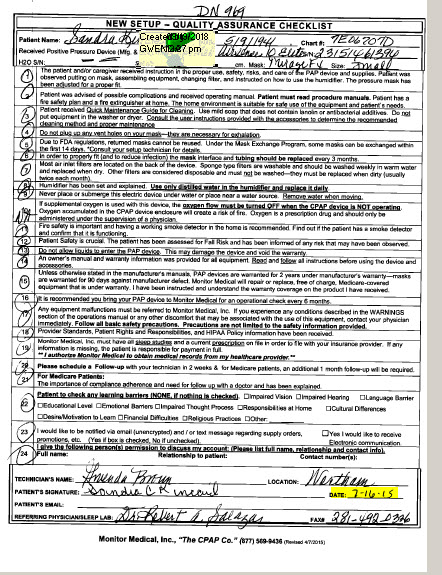 DN 969
NEW SETUP – QUALITY ASSURANCE CHECKLIST
Patient Name: Sandra 5/9/1941 Chart #:
Received Positive Pressure Device (Mfg. & 
H2O S/N: Mask: Size: Small
1 The patient and/or caregiver received instruction in the proper use, safety, risks, and care of the PAP device and supplies. Patient was
observed putting on mask, assembling equipment, changing filter, and instructed on how to use the humidifier. The pressure mask has
been adjusted for a proper fit
2 Patient was advised of possible complications and received operating manual. Patient must read procedure manuals. Patient has a
fire safety plan and a fire extinguisher at home. The home environment is suitable for safe use of the equipment and patient's needs.
3 Patient received Quick Maintenance Guide for Cleaning. Use mild soap that does not contain lanolin or antibacterial additives. Do not
put equipment in the washer or dryer. Consult the user instructions provided with the accessories to determine the recommended
cleaning method and proper maintenance
4 Do not plug any vent holes on your mask—they are necessary for exhalation.
5 Due to FDA regulations, returned masks cannot be reused. Under the Mask Exchange Program, some masks can be exchanged within
the first 14 days. *Consult your setup technician for details.
6 In order to properly fit (and to reduce infection) the mask interface and tubing should be replaced every 3 months.
7 Most air inlet filters are located on the back of the device. Sponge type filters are washable and should be washed weekly in warm water
and replaced when dry. Other filters are considered disposable and must not be washed—they must be replaced when dirty (usually
twice each month).
8 Humidifier has been set and explained. Use only distilled water in the humidifier and replace it daily.
9 Never place or submerge this electric device under water or place near a water source. Remove water when moving.
If supplemental oxygen is used with this device, the oxygen flow must be turned OFF when the CPAP device is NOT operating.
Oxygen accumulated in the CPAP device enclosure will create a risk of fire. Oxygen is a prescription drug and should only be
administered under the supervision of a physician.
11 Fire safety is important and having a working smoke detector in the home is recommended. Find out if the patient has a smoke detector
and confirm that it is functioning.
12 Patient Safety is crucial. The patient has been assessed for Fall Risk and has been informed of any risk that may have been observed.
13 Do not allow liquids to enter the PAP device. This may damage the device and void the warranty.
14 An owner's manual and warranty information was provided for all equipment. Read and follow all instructions before using the device and
accessories.
15 Unless otherwise stated in the manufacturer's manuals, PAP devices are warranted for 2 years under manufacturer's warranty—masks
are warranted for 90 days against manufacturer defect. Monitor Medical will repair or replace, free of charge, Medicare-covered
equipment that is under warranty. I have been instructed and understand the warranty coverage on the product I have received.
16 It is recommended you bring your PAP device to Monitor Medical for an operational check every 6 months.
17 Any equipment malfunctions must be referred to Monitor Medical, Inc. If you experience any conditions described in the WARNINGS
section of the operations manual or any other discomfort that may be associated with the use of this equipment, contact your physician
immediately. Follow all basic safety precautions. Precautions are not limited to the safety information provided.
18 Provider Standards, Patient Rights and Responsibilities, and HIPAA Policy information have been received.
19 Monitor Medical, Inc. must have all sleep studies and a current prescription on file in order to file with your insurance provider. If any
information is missing, the patient is responsible for payment in full.
** I authorize Monitor Medical to obtain medical records from my healthcare provider.**
20 Please schedule a Follow-up with your technician in 2 weeks & for Medicare patients, an additional 1 month follow-up will be required.
21 For Medicare Patients:
The importance of compliance adherence and need for follow up with a doctor and has been explained.
22 Patient to check any learning barriers (NONE, if nothing is checked). Impaired Vision Impaired Hearing Language Barrier
Educational Level Emotional Barriers Impaired Thought Process Responsibilities at Home Cultural Differences
Desire/Motivation to Learn Financial Difficulties Religious Practices Other:
23 I would like to be notified via email (unencrypted) and / or text message regarding supply orders, Yes I would like to receive
promotions, etc. (Yes if box is checked, No if unchecked). Electronic communication.
24 I give the following person(s) permission to discuss my account: (Please list full name, relationship and contact info).
Full name: Relationship to patient: Contact number(s):
TECHNICIAN'S NAME: LOCATION:
PATIENT'S SIGNATURE: Sandra C DATE: 7-16-15
PATIENT'S EMAIL:
REFERRING PHYSICIAN/SLEEP LAB: Dr Robert A. Salazar FAX# 281-492-0326
Monitor Medical, Inc., "The CPAP Co." (877) 569-9436 (Revised 4/7/2015)